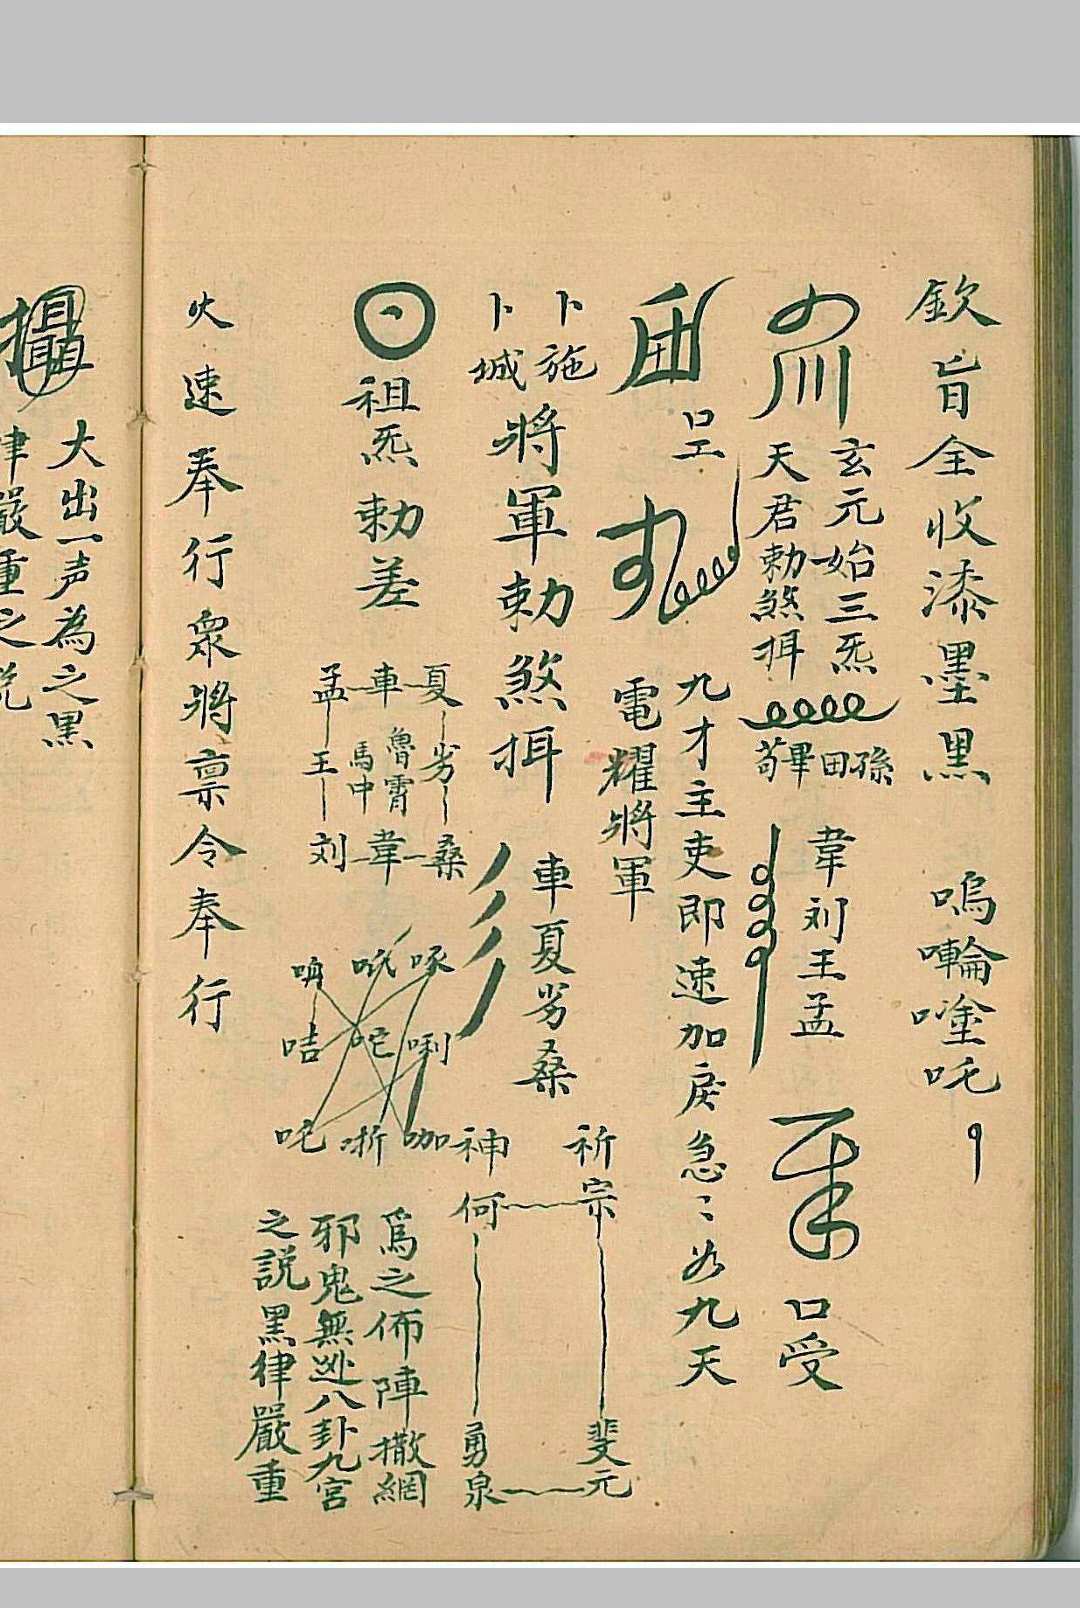 欽旨全收漆墨黒 嗚㘓㙛吒
玄元始三炁
天君勅煞挕
孫田畢苟
韋刘王孟
口受
呈
九才主吏即速加戾急〻如九天
電耀將軍
卜施
卜城
將軍勅煞挕
車夏劣桑
祈宗 斐元
神何 勇泉
祖炁勅差
夏 劣 桑
車 魯霄 馬中 韋
孟 王 刘
啄 唎 咖
吒
唽
咭 吒
爲之佈陣撒網
邪鬼無逃八卦九宮
之説黒律嚴重
火速奉行衆將禀令奉行
攝
大出一声為之黒
律嚴重之説